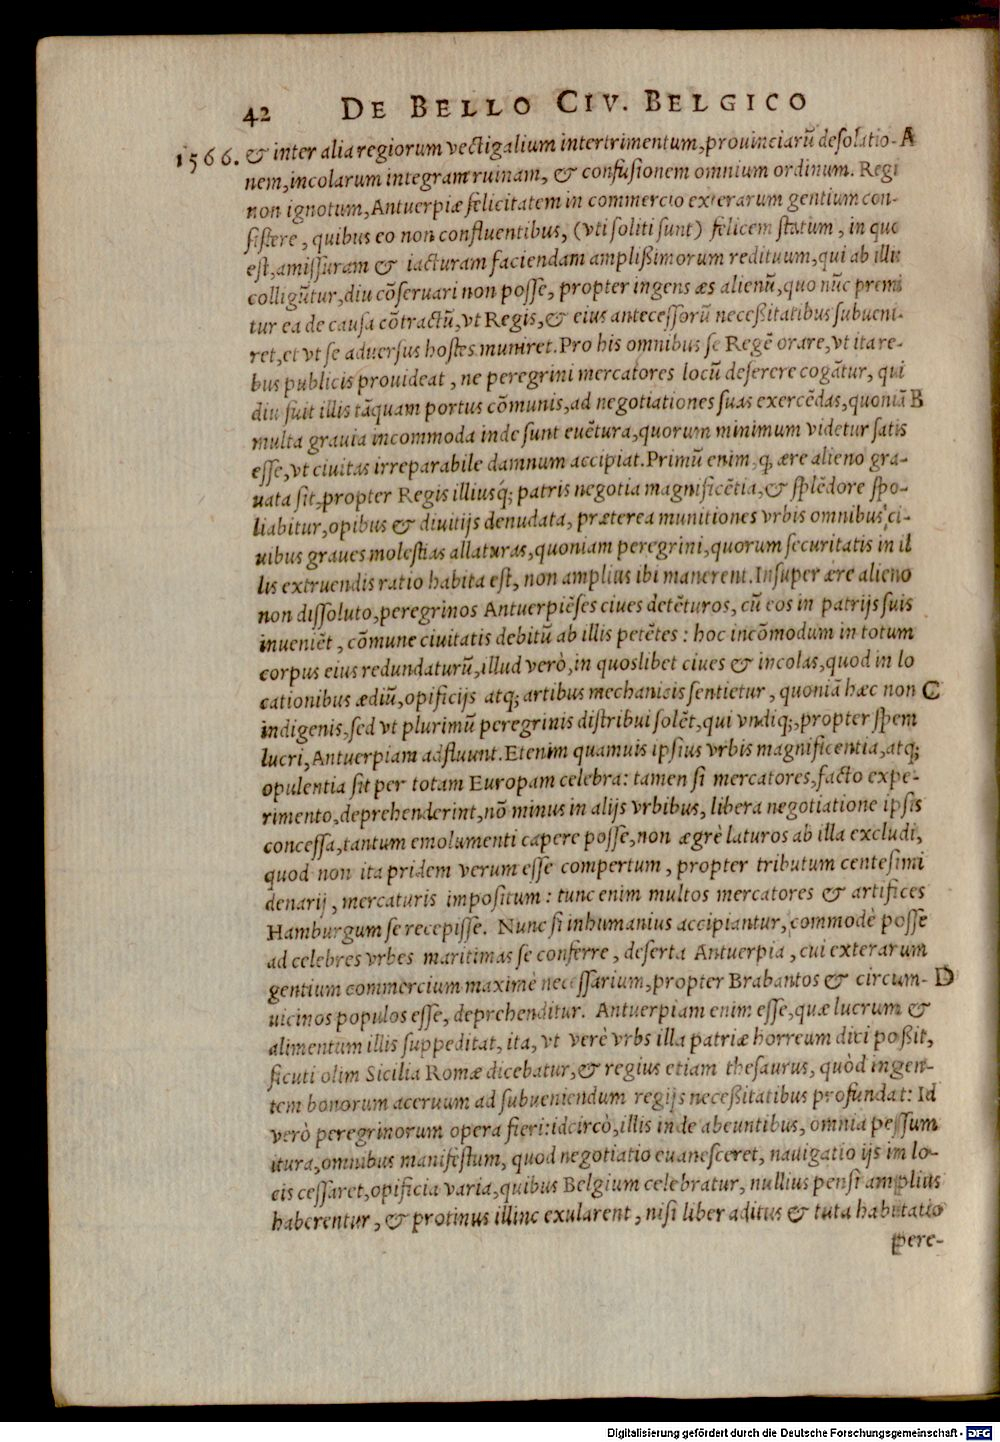 42 DE BELLO CIV. BELGICO
1566. & inter alia regiorum vectigalium intertrimentum, prouinciarũ desolatio- A
nem, incolarum integram ruinam, & confusionem omnium ordinum. Regi
non ignotum, Antuerpiæ felicitatem in commercio exterarum gentium con-
sistere, quibus eo non confluentibus, (vti soliti sunt) felicem statum, in quo
est, amissuram & iacturam faciendam amplißimorum redituum, qui ab illis
colligũtur, diu cõseruari non posse, propter ingens æs alienũ, quo nũc premi
tur ea de causa cõtractũ, vt Regis, & eius antecessorũ neceßitatibus subueni-
ret, et vt se aduersus hostes muniret. Pro his omnibus se Regẽ orare, vt ita re-
bus publicis prouideat, ne peregrini mercatores locũ deserere cogãtur, qui
diu fuit illis tãquam portus cõmunis, ad negotiationes suas exercẽdas, quoniã B
multa grauia incommoda inde sunt euẽtura, quorum minimum videtur satis
esse, vt ciuitas irreparabile damnum accipiat. Primũ enim, q, ære alieno gra-
uata sit, propter Regis illiusq́; patris negotia magnificẽtia, & splẽdore spo-
liabitur, opibus & diuitijs denudata, præterea munitiones vrbis omnibus ci-
uibus graues molestias allaturas, quoniam peregrini, quorum securitatis in il
lis extruendis ratio habita est, non amplius ibi manerent. Insuper ære alieno
non dissoluto, peregrinos Antuerpiẽses ciues detẽturos, cũ eos in patrijs suis
inueniẽt, cõmune ciuitatis debitũ ab illis petẽtes: hoc incõmodum in totum
corpus eius redundaturũ, illud verò, in quoslibet ciues & incolas, quod in lo
cationibus ædiũ, opificijs atq; artibus mechanicis sentietur, quoniã hæc non C
indigenis, sed vt plurimũ peregrinis distribui solẽt, qui vndiq;, propter spem
lucri, Antuerpiam adfluunt. Etenim quamuis ipsius vrbis magnificentia, atq;
opulentia sit per totam Europam celebra: tamen si mercatores, facto expe-
rimento, deprehenderint, nõ minus in alijs vrbibus, libera negotiatione ipsis
concessa, tantum emolumenti capere posse, non ægrè laturos ab illa excludi,
quod non ita pridem verum esse compertum, propter tributum centesimi
denarij, mercaturis impositum: tunc enim multos mercatores & artifices
Hamburgum se recepisse. Nunc si inhumanius accipiantur, commodè posse
ad celebres vrbes maritimas se conferre, deserta Antuerpia, cui exterarum
gentium commercium maximè necessarium, propter Brabantos & circum- D
uicinos populos esse, deprehenditur. Antuerpiam enim esse, quæ lucrum &
alimentum illis suppeditat, ita, vt verè vrbs illa patriæ horreum dici poßit,
sicuti olim Sicilia Romæ dicebatur, & regius etiam thesaurus, quòd ingen-
tem bonorum aceruum ad subueniendum regijs neceßitatibus profundat: Id
verò peregrinorum opera fieri: idcircò, illis inde abeuntibus, omnia pessum
itura, omnibus manifestum, quod negotiatio euanesceret, nauigatio ijs im lo-
cis cessaret, opificia varia, quibus Belgium celebratur, nullius pensi amplius
haberentur, & protinus illinc exularent, nisi liber aditus & tuta habitatio
pere-
Digitalisierung gefördert durch die Deutsche Forschungsgemeinschaft - DFG